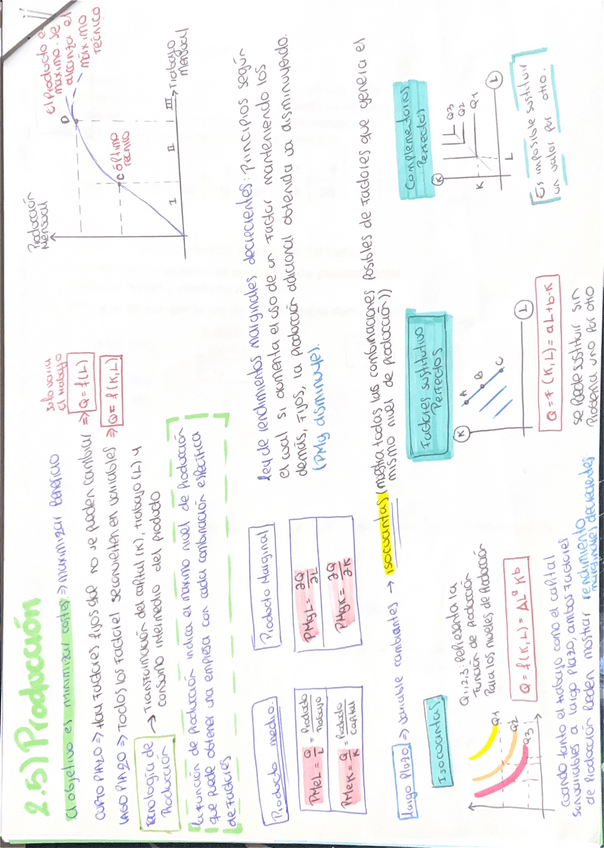 2.5) Producción
El objetivo es minimizar costes => maximizar Beneficio
CORTO PLAZO => Hay factores fijos que no se pueden cambiar => Q = f(L)
solo varía
el trabajo
LARGO PLAZO => Todos los factores se convierten en variables => Q = f(K,L)
Tecnología de
Producción
→ Transformación del capital (K), trabajo (L) y
consumo intermedio del producto
La función de Producción indica el máximo nivel de Producción
que puede obtener una empresa con cada combinación específica
de factores
Producción
Mensual
el Producto es
máximo. Se
alcanza el
máximo
técnico
D
C óptimo
técnico
I
II
III
Trabajo
mensual
Producto medio
PMeL = Q/L = Producto/Trabajo
PMeK = Q/K = Producto/capital
Producto Marginal
PMgL = ∂Q/∂L
PMgK = ∂Q/∂K
Ley de rendimientos marginales decrecientes: principios según
el cual si aumenta el uso de un factor manteniendo los
demás, fijos, la producción adicional obtenida va disminuyendo.
(PMg disminuye).
Largo Plazo => variable cambiantes → Isocuantas (mostra todas las combinaciones posibles de factores que genera el
mismo nivel de producción))
Isocuantas
Q1,2,3 representa la
función de Producción
Para los niveles de Producción
Q1
Q2
Q3
Q = f(K,L) = AL^a K^b
Cuando tanto el trabajo como el capital
son variables a largo plazo, ambos factores
de Producción pueden mostrar rendimiento
marginales decrecientes
Factores sustitutivo
Perfectos
K
A
B
C
L
Q = f (K,L) = aL+b·K
se puede sustituir sin
Problema uno por otro
Complementarios
Perfectos
K
Q3
Q2
Q1
K
L
L
Es imposible sustituir
un valor por
otro.